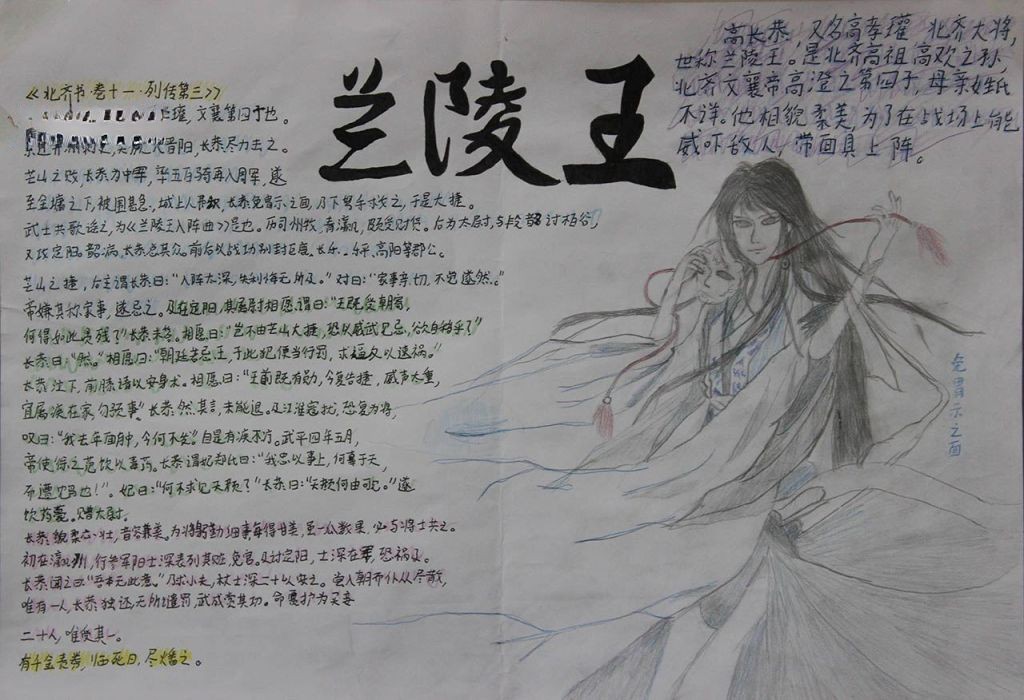 兰陵王
高长恭 又名高孝瓘 北齐大将,
世称兰陵王。是北齐高祖高欢之孙
北齐文襄帝高澄之第四子,母亲姓氏
不详。他相貌柔美,为了在战场上能
威吓敌人,带面具上阵。
《北齐书·卷十一·列传第三》
瓘,文襄第四子也。
晋阳,长恭尽力击之。
芒山之败,长恭为中军,率五百骑再入周军,遂
至金墉之下,被围甚急,城上人弗识,长恭免胄示之面,乃下弩手救之,于是大捷。
武士共歌谣之,为《兰陵王入阵曲》是也。历司州牧,青瀛,颇受财货。后为太尉,与段韶讨柏谷,
又攻定阳。韶病,长恭总其众。前后以战功别封巨鹿、长乐、乐平、高阳等郡公。
芒山之捷,后主谓长恭曰:“入阵太深,失利悔无所及。”对曰:“家事亲切,不觉遂然。”
帝嫌其称家事,遂忌之。及在定阳,其属尉相愿谓曰:“王既受朝寄,
何得如此贪残?”长恭未答。相愿曰:“岂不由芒山大捷,恐以威武见忌,欲自秽乎?”
长恭曰:“然。”相愿曰:“朝廷若忌王,于此犯便当行罚,求福反以速祸。”
长恭泣下,前膝请以安身术。相愿曰:“王前既有勋,今复告捷,威声太重,
宜属疾在家,勿预事。”长恭然其言,未能退。及江淮寇扰,恐复为将,
叹曰:“我去年面肿,今何不发。”自是有疾不疗。武平四年五月,
帝使徐之范饮以毒药。长恭谓妃郑氏曰:“我忠以事上,何辜于天,
而遭鸩也!”。妃曰:“何不求见天颜?”长恭曰:“天颜何由可见。”遂
饮药薨。赠太尉。
长恭貌柔心壮,音容兼美。为将躬勤细事每得甘美,虽一瓜数果,必与将士共之。
初在瀛州,行参军阳士深表列其赃,免官。及讨定阳,士深在军,恐祸及。
长恭闻之曰“吾本无此意。”乃求小失,杖士深二十以安之。尝入朝而仆从尽散,
唯有一人,长恭独还,无所谴罚,武成赏其功。命贾护为买妾
二十人,唯受其一。
有千金责券,临死日,尽燔之。
免胄示之面